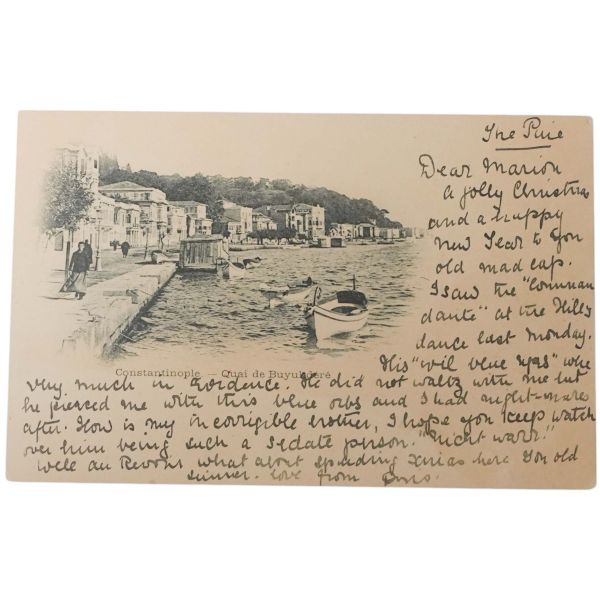 The Pine
Dear Marion
a jolly Christmas
and a nappy
new Year to you
old mad cap.
I saw the "Comman
dante" at the Hills
dance last Monday.
Constantinople. — Quai de Buyukderé
His "wil blue" whe
very much in evidence. He did not waltz with me but
he pierced me with this blue orbs and I had night-mares
after. How is my incorrigible brother, I hope you keep watch
over him being such a sedate person. "Nicht wahr!"
Well au Revoir, what about spending Xmas here you old
sinner. Love from